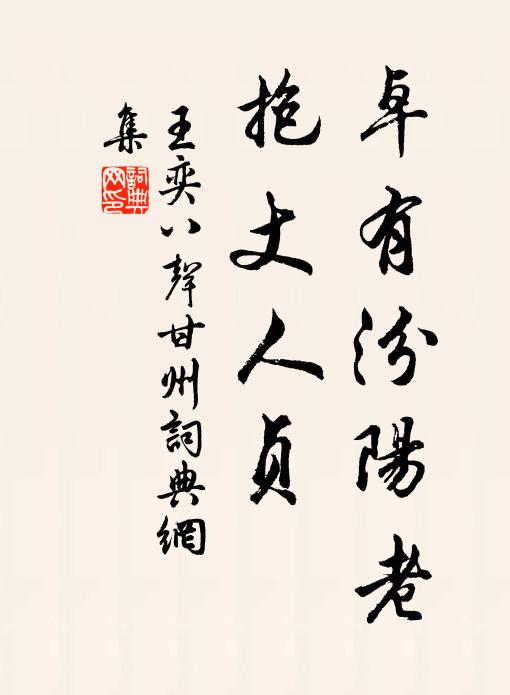 卓有汾陽老
抱丈人貞
王奕八聲甘州詞典網
集
詞典網印